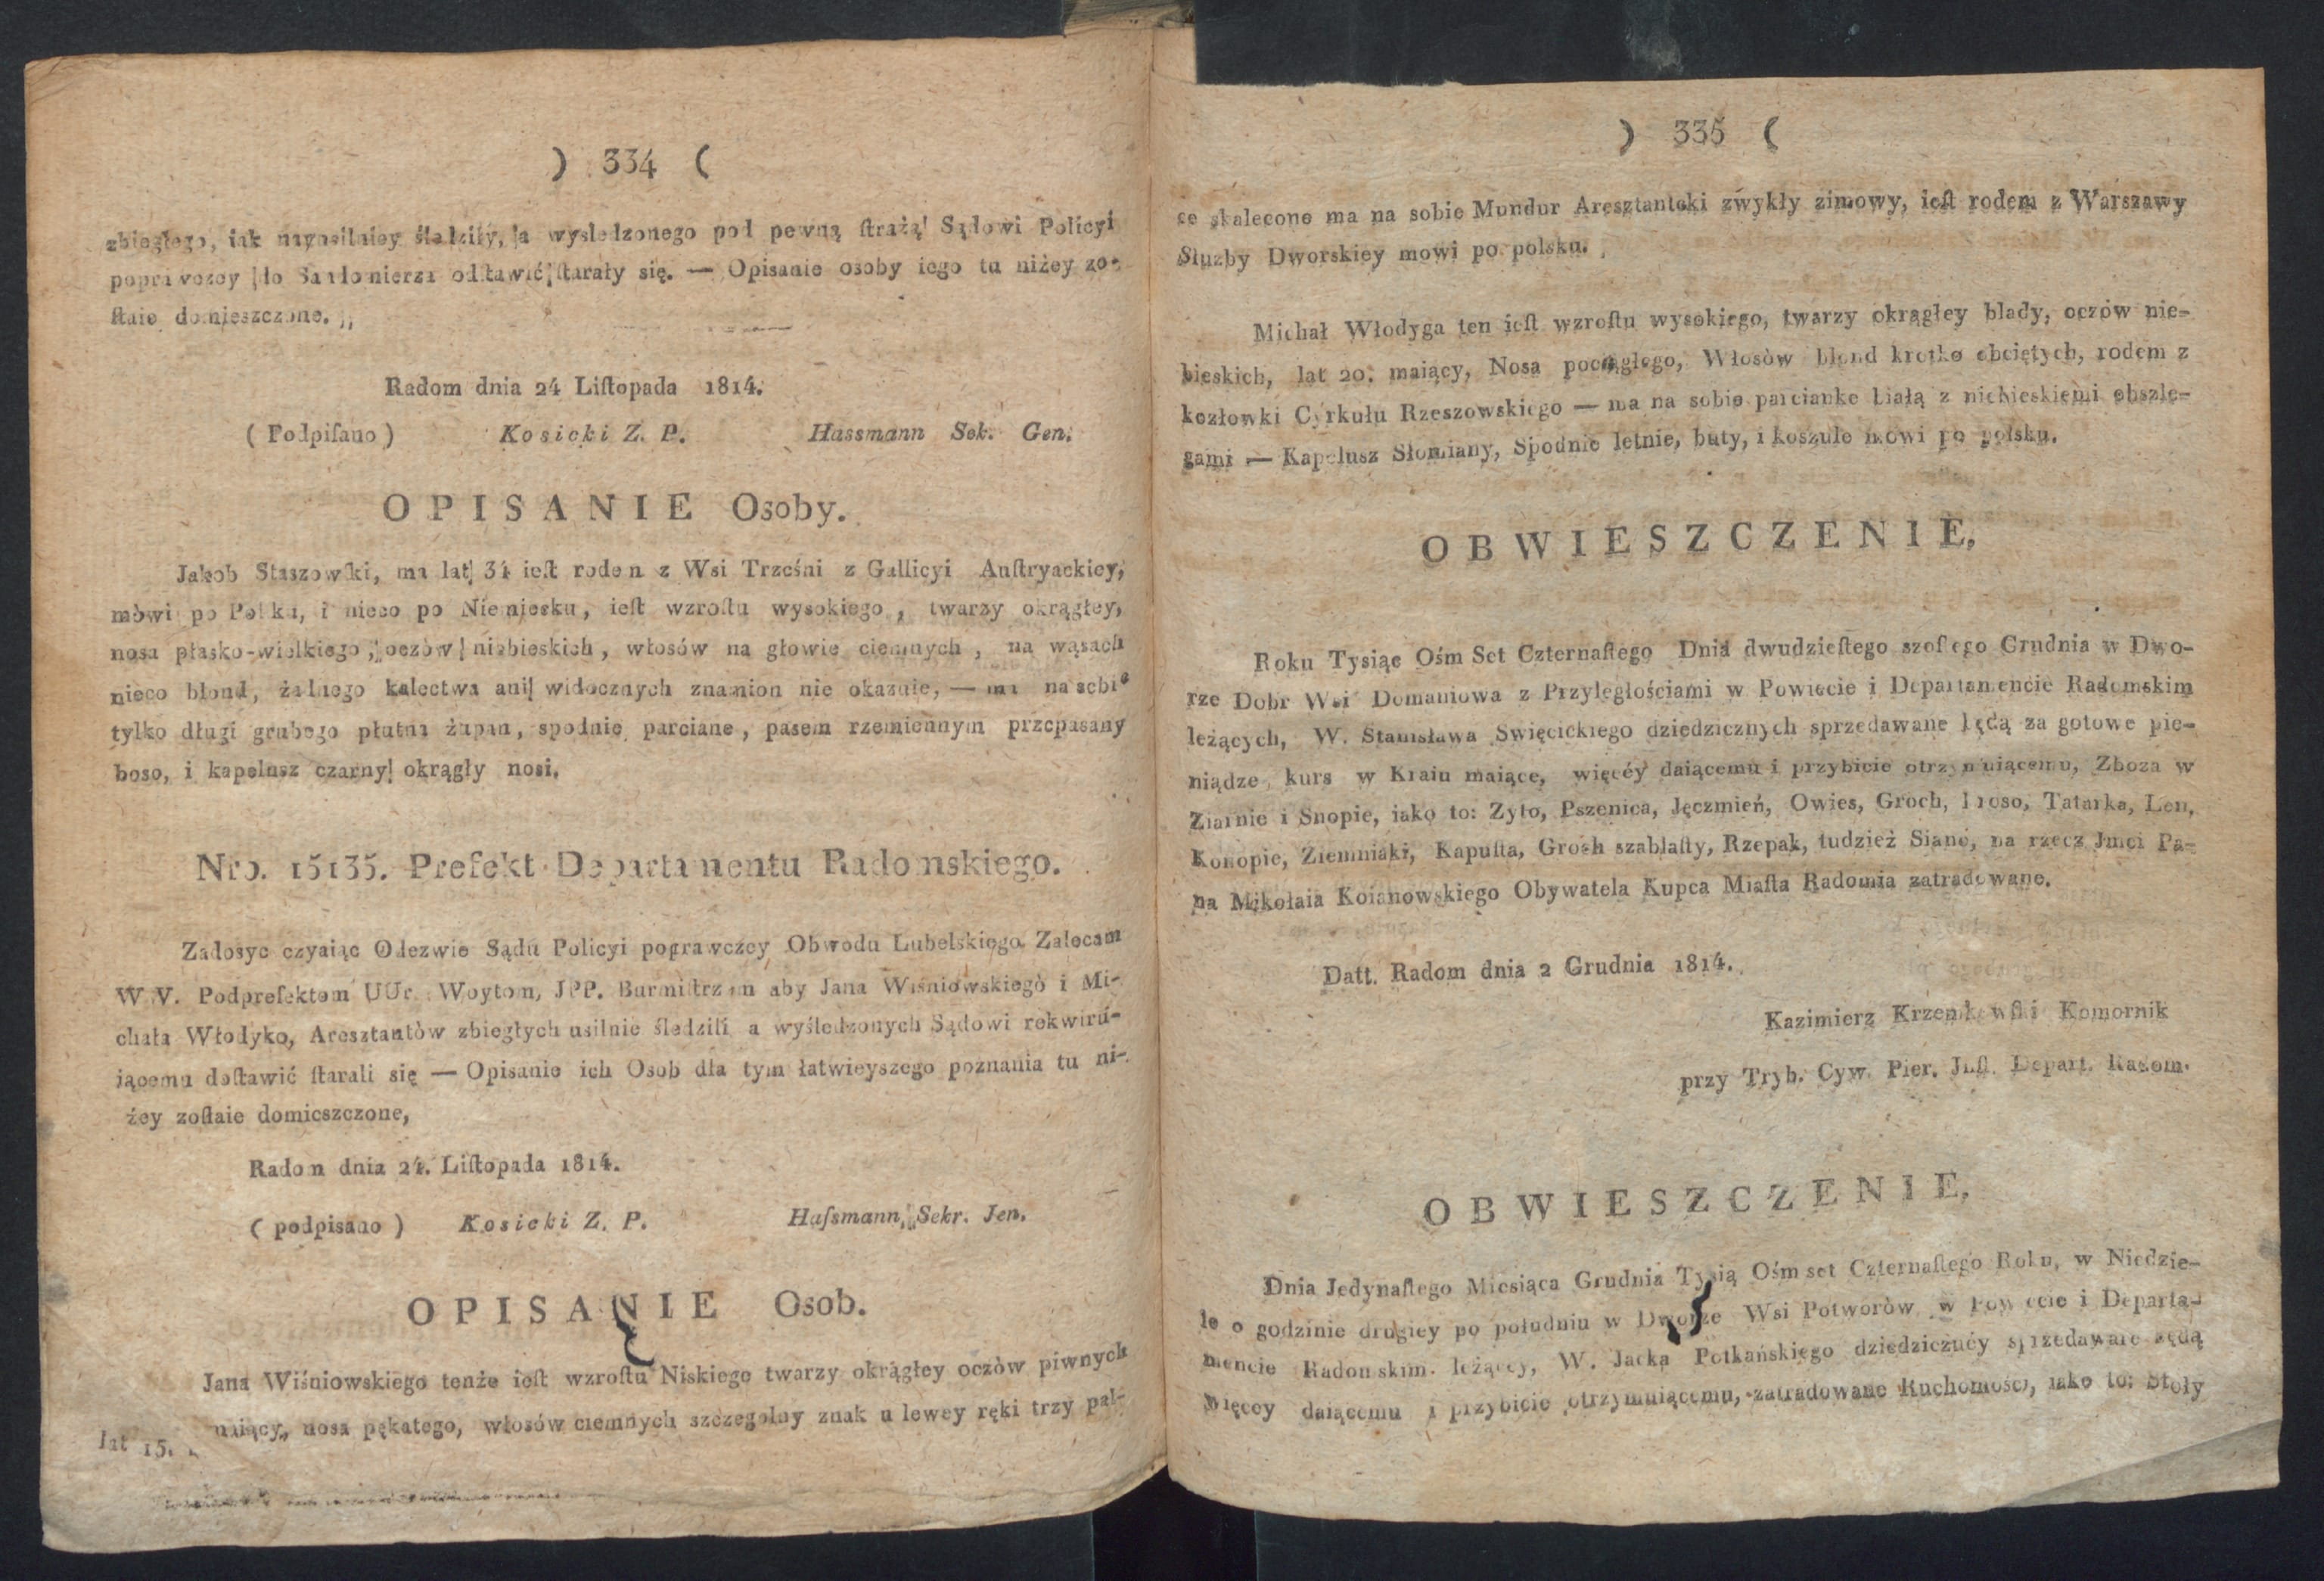 ) 334 (
zbiegłego, iak nayusilniey śledziły, a wysledzonego pod pewną ſtrażą Sądowi Policyi
poprawczey do Sandomierza odſtawić ſtarały się. — Opisanie osoby iego tu niżey zo-
ſtaie domieszczone.
Radom dnia 24 Liſtopada 1814.
( Podpiſano ) Kosicki Z. P. Hassmann Sek. Gen.
OPISANIE Osoby.
Jakob Staszowſki, ma lat 34 ieſt rodem z Wsi Trześni z Gallicyi Auſtryackiey,
mòwi po Polsku, i nieco po Niemiecku, ieſt wzroſtu wysokiego, twarzy okrągłey,
nosa płasko-wielkiego, oczòw niebieskich, włosów na głowie ciemnych, na wąsach
nieco blond, żadnego kalectwa ani widocznych znamion nie okazuie, — ma na sobie
tylko długi grubego płutna żupan, spodnie parciane, pasem rzemiennym przepasany
boso, i kapelusz czarny okrągły nosi.
Nro. 15135. Prefekt Departamentu Radomskiego.
Zadosyc czyniąc Odezwie Sądu Policyi poprawczey Obwodu Lubelskiego. Zalecam
W.V. Podprefektom UUr. Woytom, JPP. Burmiſtrzom aby Jana Wiśniowskiego i Mi-
chała Włodyko, Aresztantòw zbiegłych usilnie śledzili a wyśledzonych Sądowi rekwiru-
iącemu doſtawić ſtarali się — Opisanie ich Osob dla tym łatwieyszego poznania tu ni-
żey zoſtaie domieszczone,
Radom dnia 24. Liſtopada 1814.
( podpisano ) Kosicki Z. P. Haſsmann, Sekr. Jen.
OPISANIE Osob.
Jana Wiśniowskiego tenże ieſt wzroſtu Niskiego twarzy okrągłey oczòw piwnych
lat 15. maiący, nosa pękatego, włosów ciemnych szczegolny znak u lewey ręki trzy pal-
) 335 (
ce skalecone ma na sobie Mundur Aresztantski zwykły zimowy, ieſt rodem z Warszawy
Służby Dworskiey mowi po polsku.
Michał Włodyga ten ieſt wzroſtu wysokiego, twarzy okrągłey blady, oczòw nie-
bieskich, lat 20. maiący, Nosa pociągłego, Włosòw blond krotko obciętych, rodem z
kozłowki Cyrkułu Rzeszowskiego — ma na sobie parcianke białą z niebieskiemi obszle-
gami — Kapelusz Słomiany, Spodnie letnie, buty, i koszule mowi po polsku.
OBWIESZCZENIE,
Roku Tysiąc Ośm Set Czternaſtego Dnia dwudzieſtego szoſtego Grudnia w Dwo-
rze Dobr Wsi Domaniowa z Przyległościami w Powiecie i Departamencie Radomskim
leżących, W. Stanisława Swięcickiego dziedzicznych sprzedawane będą za gotowe pie-
niądze, kurs w Kraiu maiące, więcéy daiącemu i przybicie otrzymuiącemu, Zboza w
Ziarnie i Snopie, iako to: Zyto, Pszenica, Jęczmień, Owies, Groch, Proso, Tatarka, Len,
Konopie, Ziemniaki, Kapuſta, Groch szablaſty, Rzepak, tudzież Siano, na rzecz Jmci Pa-
na Mikołaia Koianowskiego Obywatela Kupca Miaſta Radomia zatradowane.
Datt. Radom dnia 2 Grudnia 1814.
Kazimierz Komornik
przy Tryb. Cyw. Pier. Jnſt. Depart. Radom.
OBWIESZCZENIE,
Dnia Jedynaſtego Miesiąca Grudnia Tysią Ośm set Czternaſtego Roku, w Niedzie-
le o godzinie drugiey po południu w Dworze Wsi Potworòw w Powiecie i Departa-
mencie Radomskim leżącey, W. Jacka Potkańskiego dziedziczney sprzedawane będą
więcey daiącemu i przybicie otrzymuiącemu, zatradowane Ruchomości, iako to: Stoły